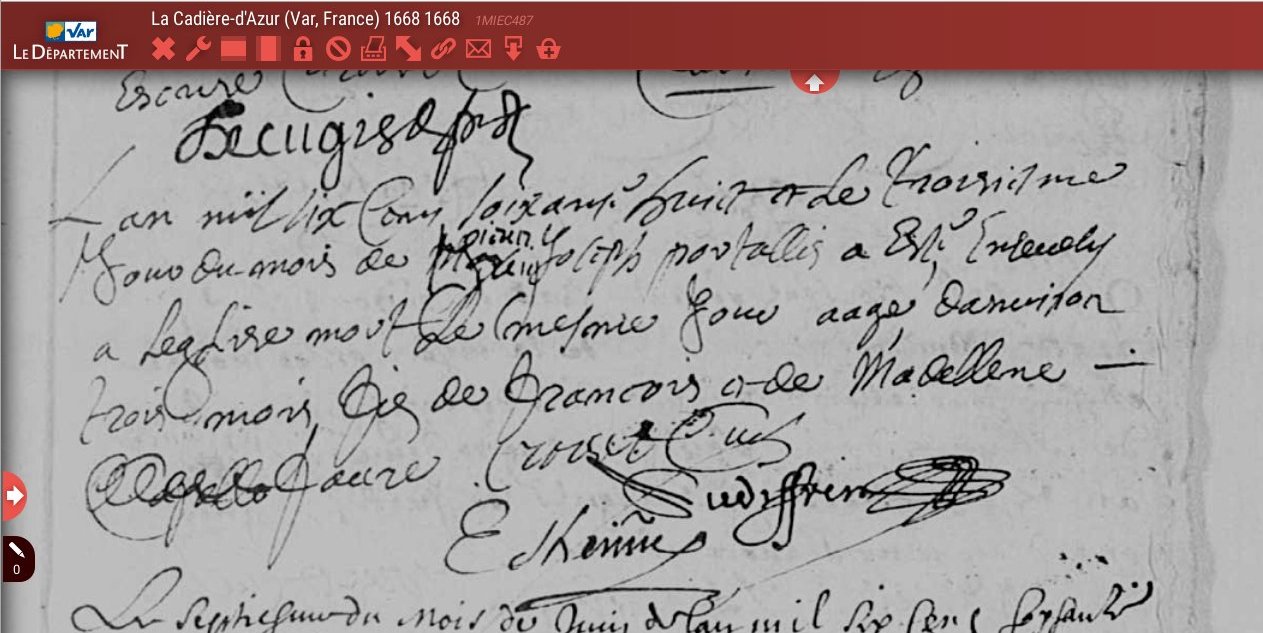 La Cadière-d'Azur (Var, France) 1668 1668 1MIEC487
VAR
LE DÉPARTEMENT
0
Escuire
Decugis
Lan mil six Cens soixante huict et le troisiesme
Jour du mois de Juin Joseph portallis a Esté Ensevely
a leglise mort le mesme Jour aagé danviron
trois mois fils de francois et de Madellene
faure Crozet Curé
Audiffren
Esthienne
Le septiesme du mois de Juin de lan mil six cens soixante